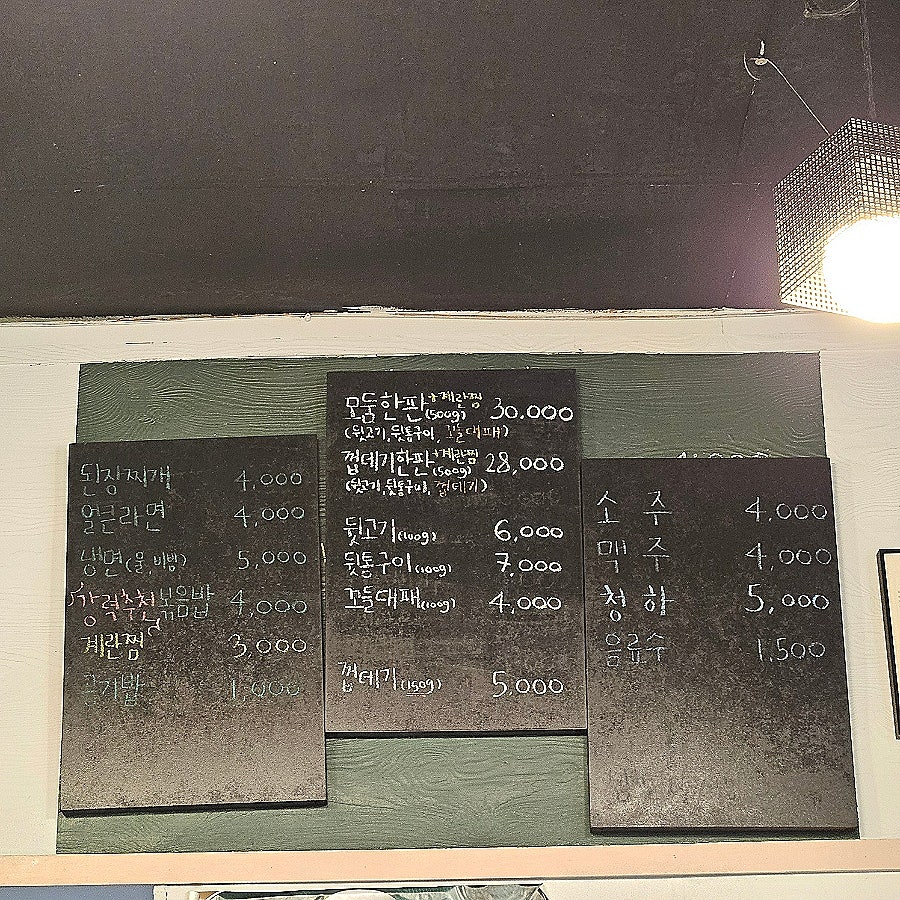 된장찌개 4,000
얼큰라면 4,000
냉면(물,비빔) 5,000
강력추천 볶음밥 4,000
계란찜 3,000
공기밥 1,000
모둠한판(500g)+계란찜 30.000
(뒷고기,뒷통구이,꼬들대패)
껍데기한판(500g)+계란찜 28,000
(뒷고기,뒷통구이,껍데기)
뒷고기(100g) 6,000
뒷통구이(100g) 7,000
꼬들대패(100g) 4,000
껍데기(150g) 5,000
소주 4,000
맥주 4,000
청하 5,000
음료수 1,500